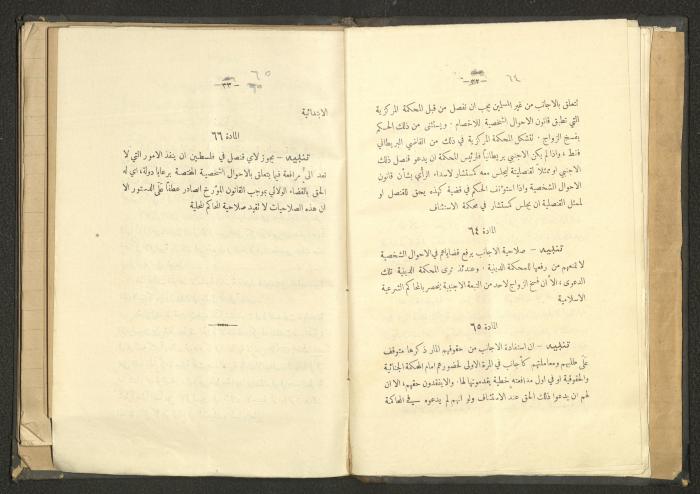 ٦٤
— ٣٢ —
تتعلق بالاجانب من غير المسلمين يجب ان تفصل من قبل المحكمة المركزية
التي تطبق قانون الاحوال الشخصية للاخصام . ويستثنى من ذلك الحكم
بفسخ الزواج . تتشكل المحكمة المركزية في ذلك من القاضي البريطاني
فقط ، واذا لم يكن الاجنبي بريطانياً فلرئيس المحكمة ان يدعو قنصل ذلك
الاجنبي او ممثلاً لقنصليته ليجلس معه كمستشار لاسداء الرأي بشأن قانون
الاحوال الشخصية واذا استؤنف الحكم في قضية كهذه يحق للقنصل او
لممثل القنصلية ان يجلس كمستشار في محكمة الاستئناف
المادة ٦٤
تنبيه — صلاحية الاجانب برفع قضاياهم في الاحوال الشخصية
لا تمنعهم من رفعها للمحكمة الدينية . وعندئذ ترى المحكمة الدينية تلك
الدعوى ، الا ان فسخ الزواج لاحد من التبعة الاجنبية ينحصر بالمحاكم الشرعية
الاسلامية
المادة ٦٥
تنبيه — ان استفادة الاجانب من حقوقهم المار ذكرها متوقف
على طلبهم ومعاملتهم كأجانب في المرة الاولى لحضورهم امام المحكمة الجنائية
والحقوقية او في اول مدافعة خطية يقدمونها لها . والا يفقدون حقهم ، الا ان
لهم ان يدعوا ذلك الحق عند الاستئناف ولو انهم لم يدعوه في المحاكمة
٦٥
— ٣٣ —
الابتدائية
المادة ٦٦
تنبيه — يجوز لاي قنصل في فلسطين ان ينفذ الامور التي لا
تعد الى مرافعة فيما يتعلق بالاحوال الشخصية المختصة برعايا دولة ، اي له
الحق بالقضاء الولائي بموجب القانون المؤرخ الصادر عطفاً على الدستور الا
ان هذه الصلاحيات لا تقيد صلاحية المحاكم المحلية